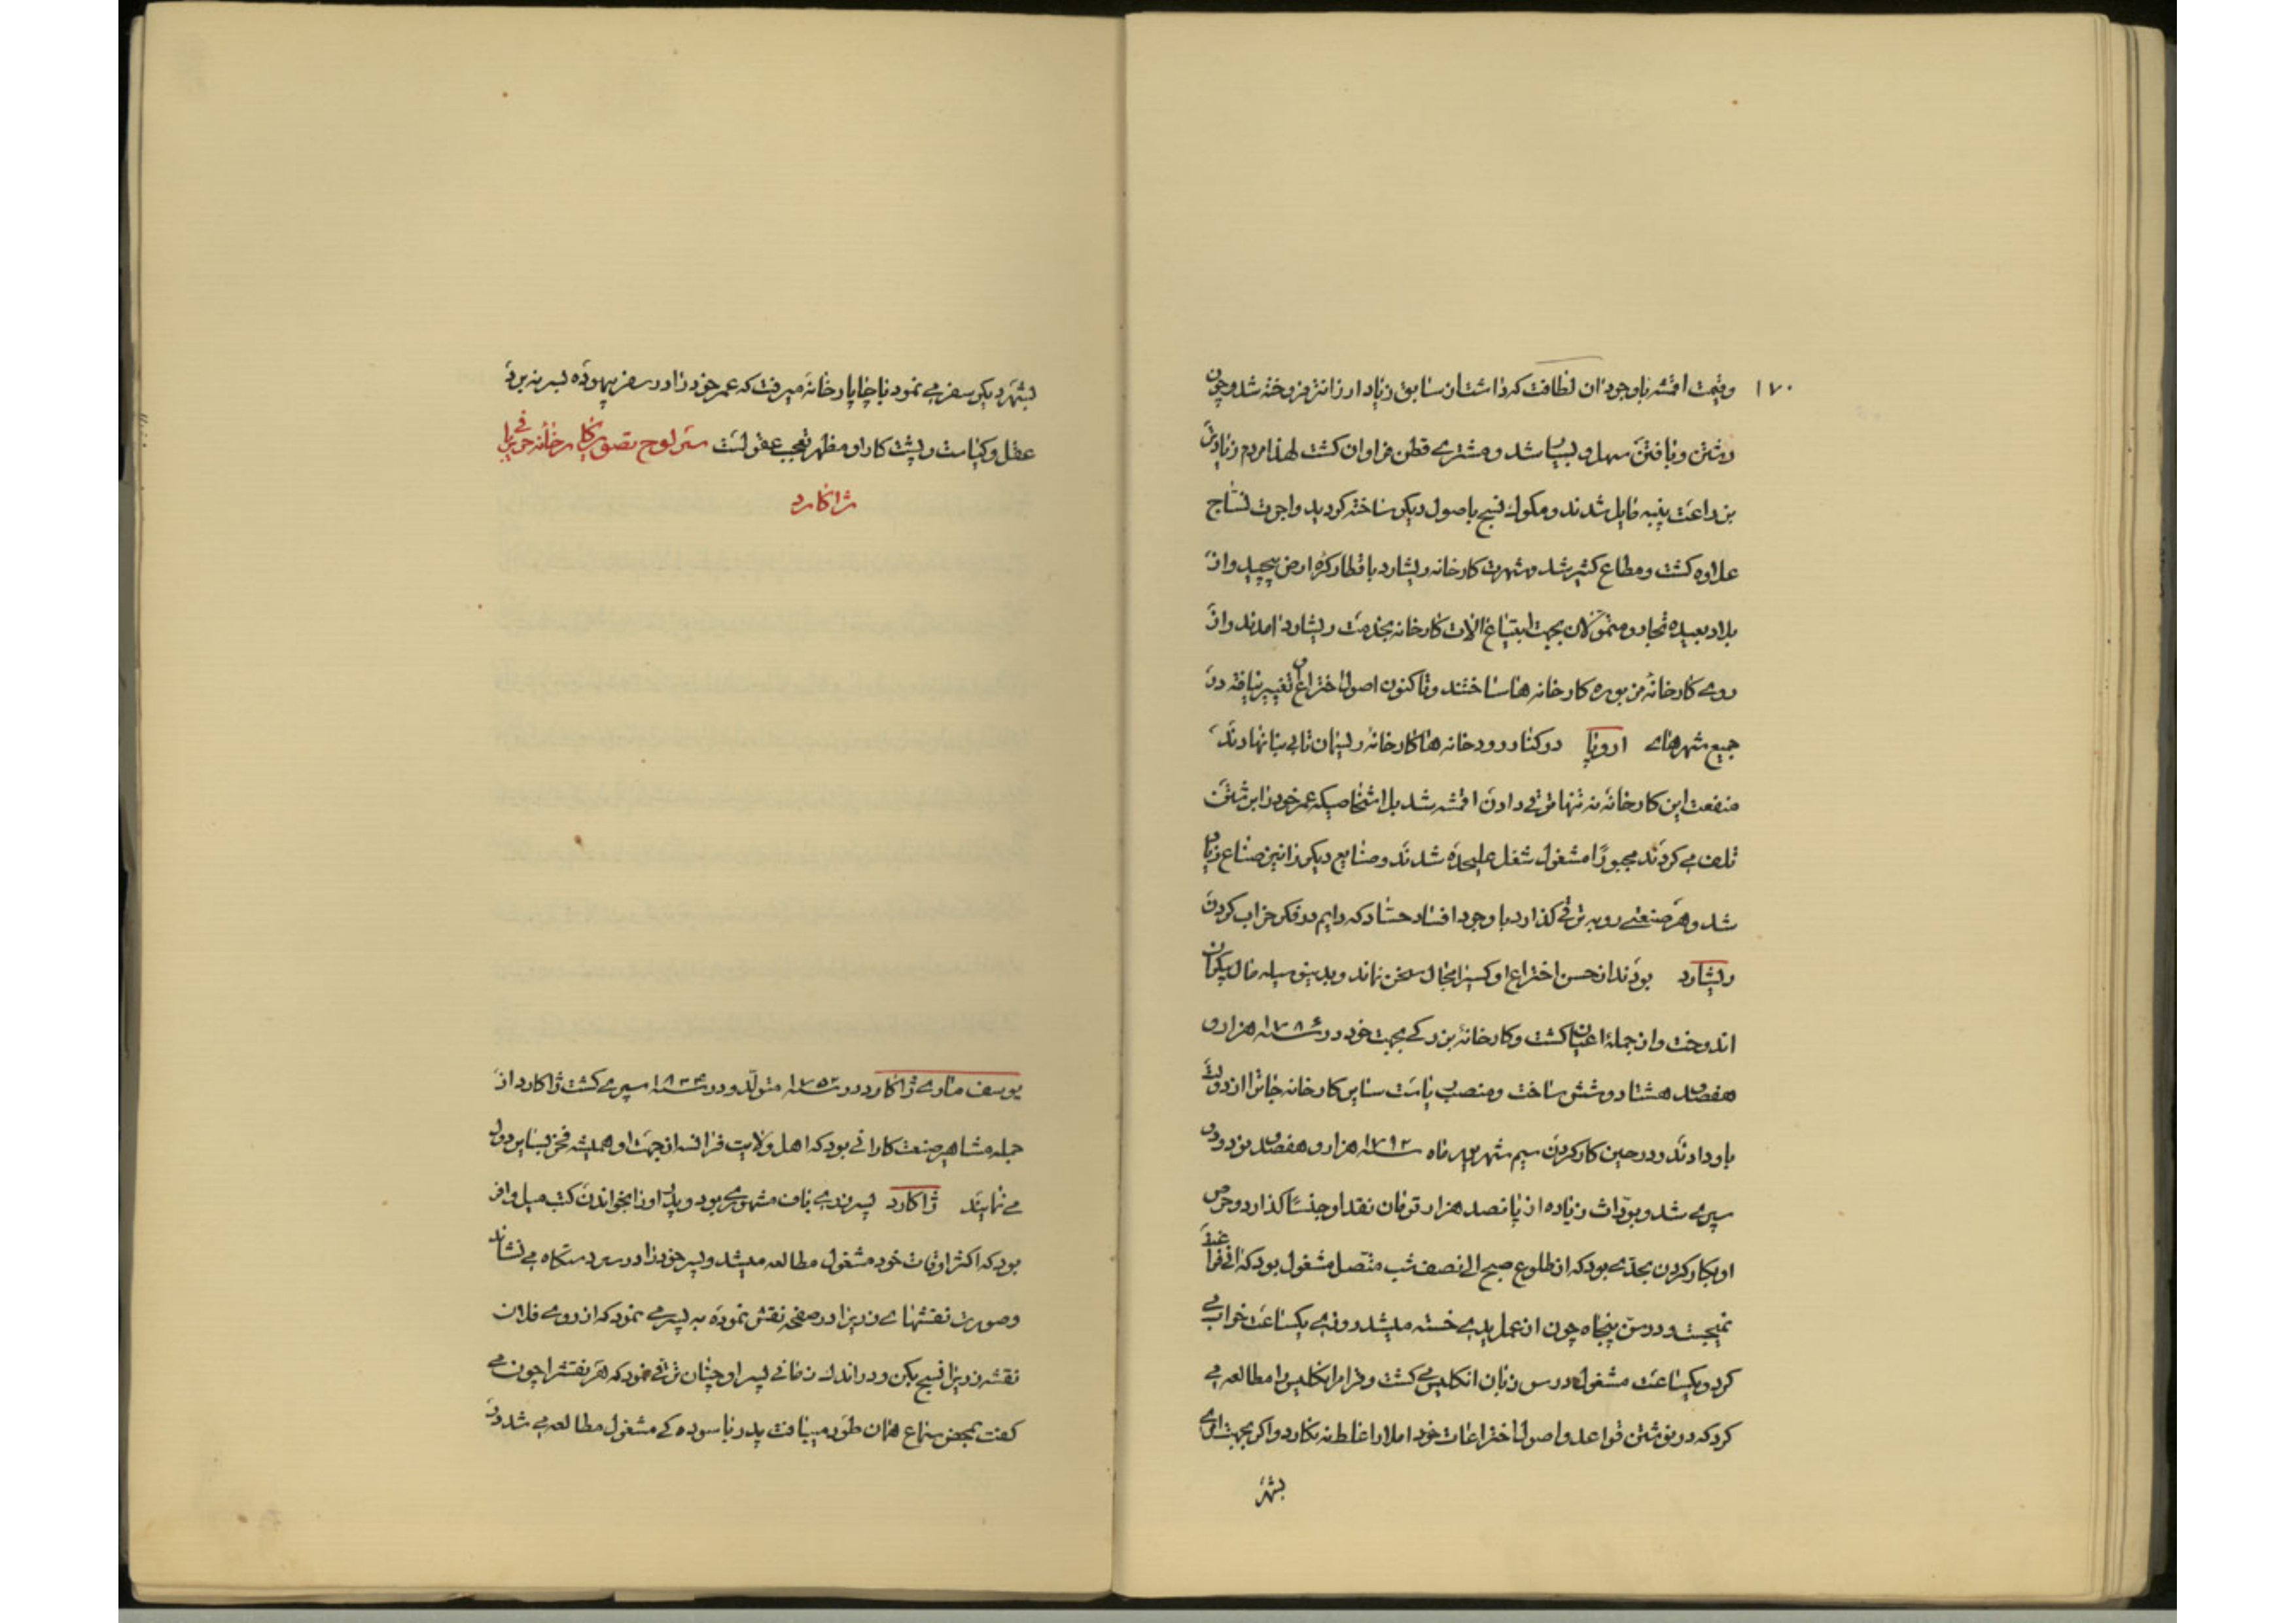 ۱۷۰
وقیمت اقمشه باوجود ان لطافت که داشت از سابق زیاد ارزانتر فروخته شد و چون
رشتن و بافتن سهل و بسیار شد و مشتری قطن فراوان گشت لهذا مردم زیاد تر
بزراعت پنبه مایل شدند و مکوک نسج باصول دیگر ساخته گردید و اجرت نساج
علاوه گشت و مطاع کثیر شد و شهرت کارخانه ریشارد باقطار کره ارض پیچید و از
بلاد بعیده تجار و متمولان بجهت ابتیاع الات کارخانه بخدمت ریشارد امدند و از
روی کارخانه مزبوره کارخانه ها ساختند و تاکنون اصول اختراع او تغییر نیافته در
جمیع شهرهای اروپا در کنار رودخانه ها کارخانه ریسمان تابی بنا نهادند
منفعت این کارخانه نه تنها ترقی دادن اقمشه شد بل اشخاصیکه عمر خود را برشتن
تلف می کردند مجبورًا مشغول شغل علیحده شدند و صنایع دیگر را نیز صناع زیاد
شد و هر صنعتی رو به ترقی گذارد باوجود افساد حساد که دایم در فکر خراب کردن
ریشارد بودند از حسن اختراع او کسیرا مجال سخن نماند و بدینوسیله مال بیکران
اندوخت و از جملهٔ اعیان گشت و کارخانهٔ بزرگی بجهت خود در سنه ۱۷۸۶ هزار و
هفصد هشتاد و شش ساخت و منصب ریاست سایر کارخانه جاترا از دولت
باو دادند و در حین کار کردن سیم شهر ماه سنه ۱۷۹۲ هزار و هفصد نود و دو
سپری شد و بوراث زیاده از پانصد هزار تومان نقد او جنسًا گذارد و حرص
او بکار کردن بحدی بود که از طلوع صبح الی نصف شب متصل مشغول بود که انی فراغت
نمیجست و در سن پنجاه چون از عمل یدی خسته میشد روزی یکساعت خواب می
کرد و یکساعت مشغول درس زبان انگلیس می گشت و فرامر انگلیس را مطالعه می
کرد که در نوشتن قواعد و اصول اختراعات خود املا را غلط ننگارد و اگر بجهت امری
بشهر
بشهر دیگر سفر می نمود با چاپارخانه میرفت که عمر خود را در سفر بیهوده بسر نبرد
عقل و کیاست ریشت کارا و مظهر تعجب عقولست سر لوح تصویر کارخانه حریر بافی
ژاکارد
یوسف ماری ژاکارد در سنه ۱۷۵۲ متولد و در سنه ۱۸۳۴ سپری گشت ژاکارد از
جمله مشاهیر صنعت کارانی بود که اهل ولایت فرانسه از جهت او همیشه فخر بسایر دول
می نمایند ژاکارد پسر زری باف مشهوری بود و پدر او را بخواندن کتب میل وافر
بود که اکثر اوقات خود مشغول مطالعه میشد و پسر خود را در سر دستگاه می نشاند
و صورت نقشهای زری را در صفحه نقش نموده به پسر می نمود که از روی فلان
نقشه زری را نسج بکن و در اندک زمانی پسر او چنان ترقی نمود که هر نقشرا چون می
گفت بمحض سماع همان طور میبافت پدر با سوده گی مشغول مطالعه می شد در